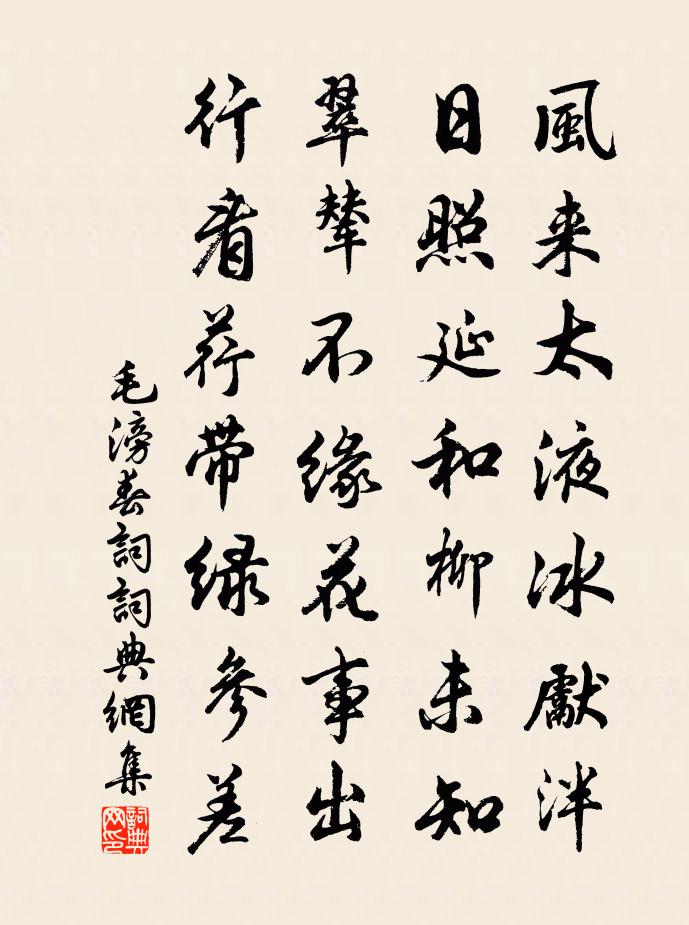 風来太液冰獻泮
日照延和柳未知
翠輦不緣花事出
行看荇帶緑參差
毛滂春詞詞典網集
詞典網印